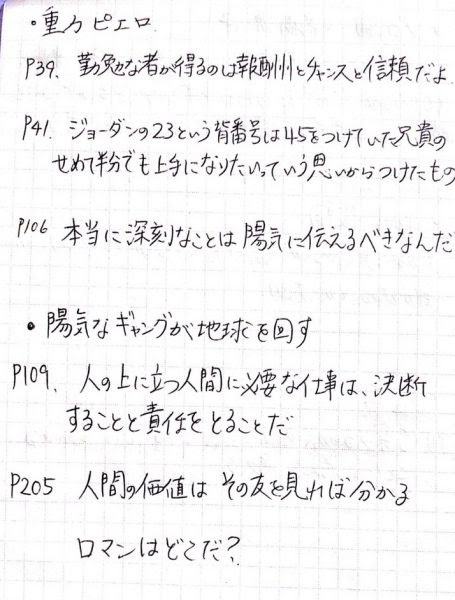 ・重力ピエロ
P39. 勤勉な者が得るのは報酬とチャンスと信頼だよ
P41. ジョーダンの23という背番号は45をつけていた兄貴の
せめて半分でも上手になりたいっていう思いからつけたもの
P106 本当に深刻なことは陽気に伝えるべきなんだ
・陽気なギャングが地球を回す
P109. 人の上に立つ人間に必要な仕事は、決断
することと責任をとることだ
P205 人間の価値はその友を見れば分かる
ロマンはどこだ?